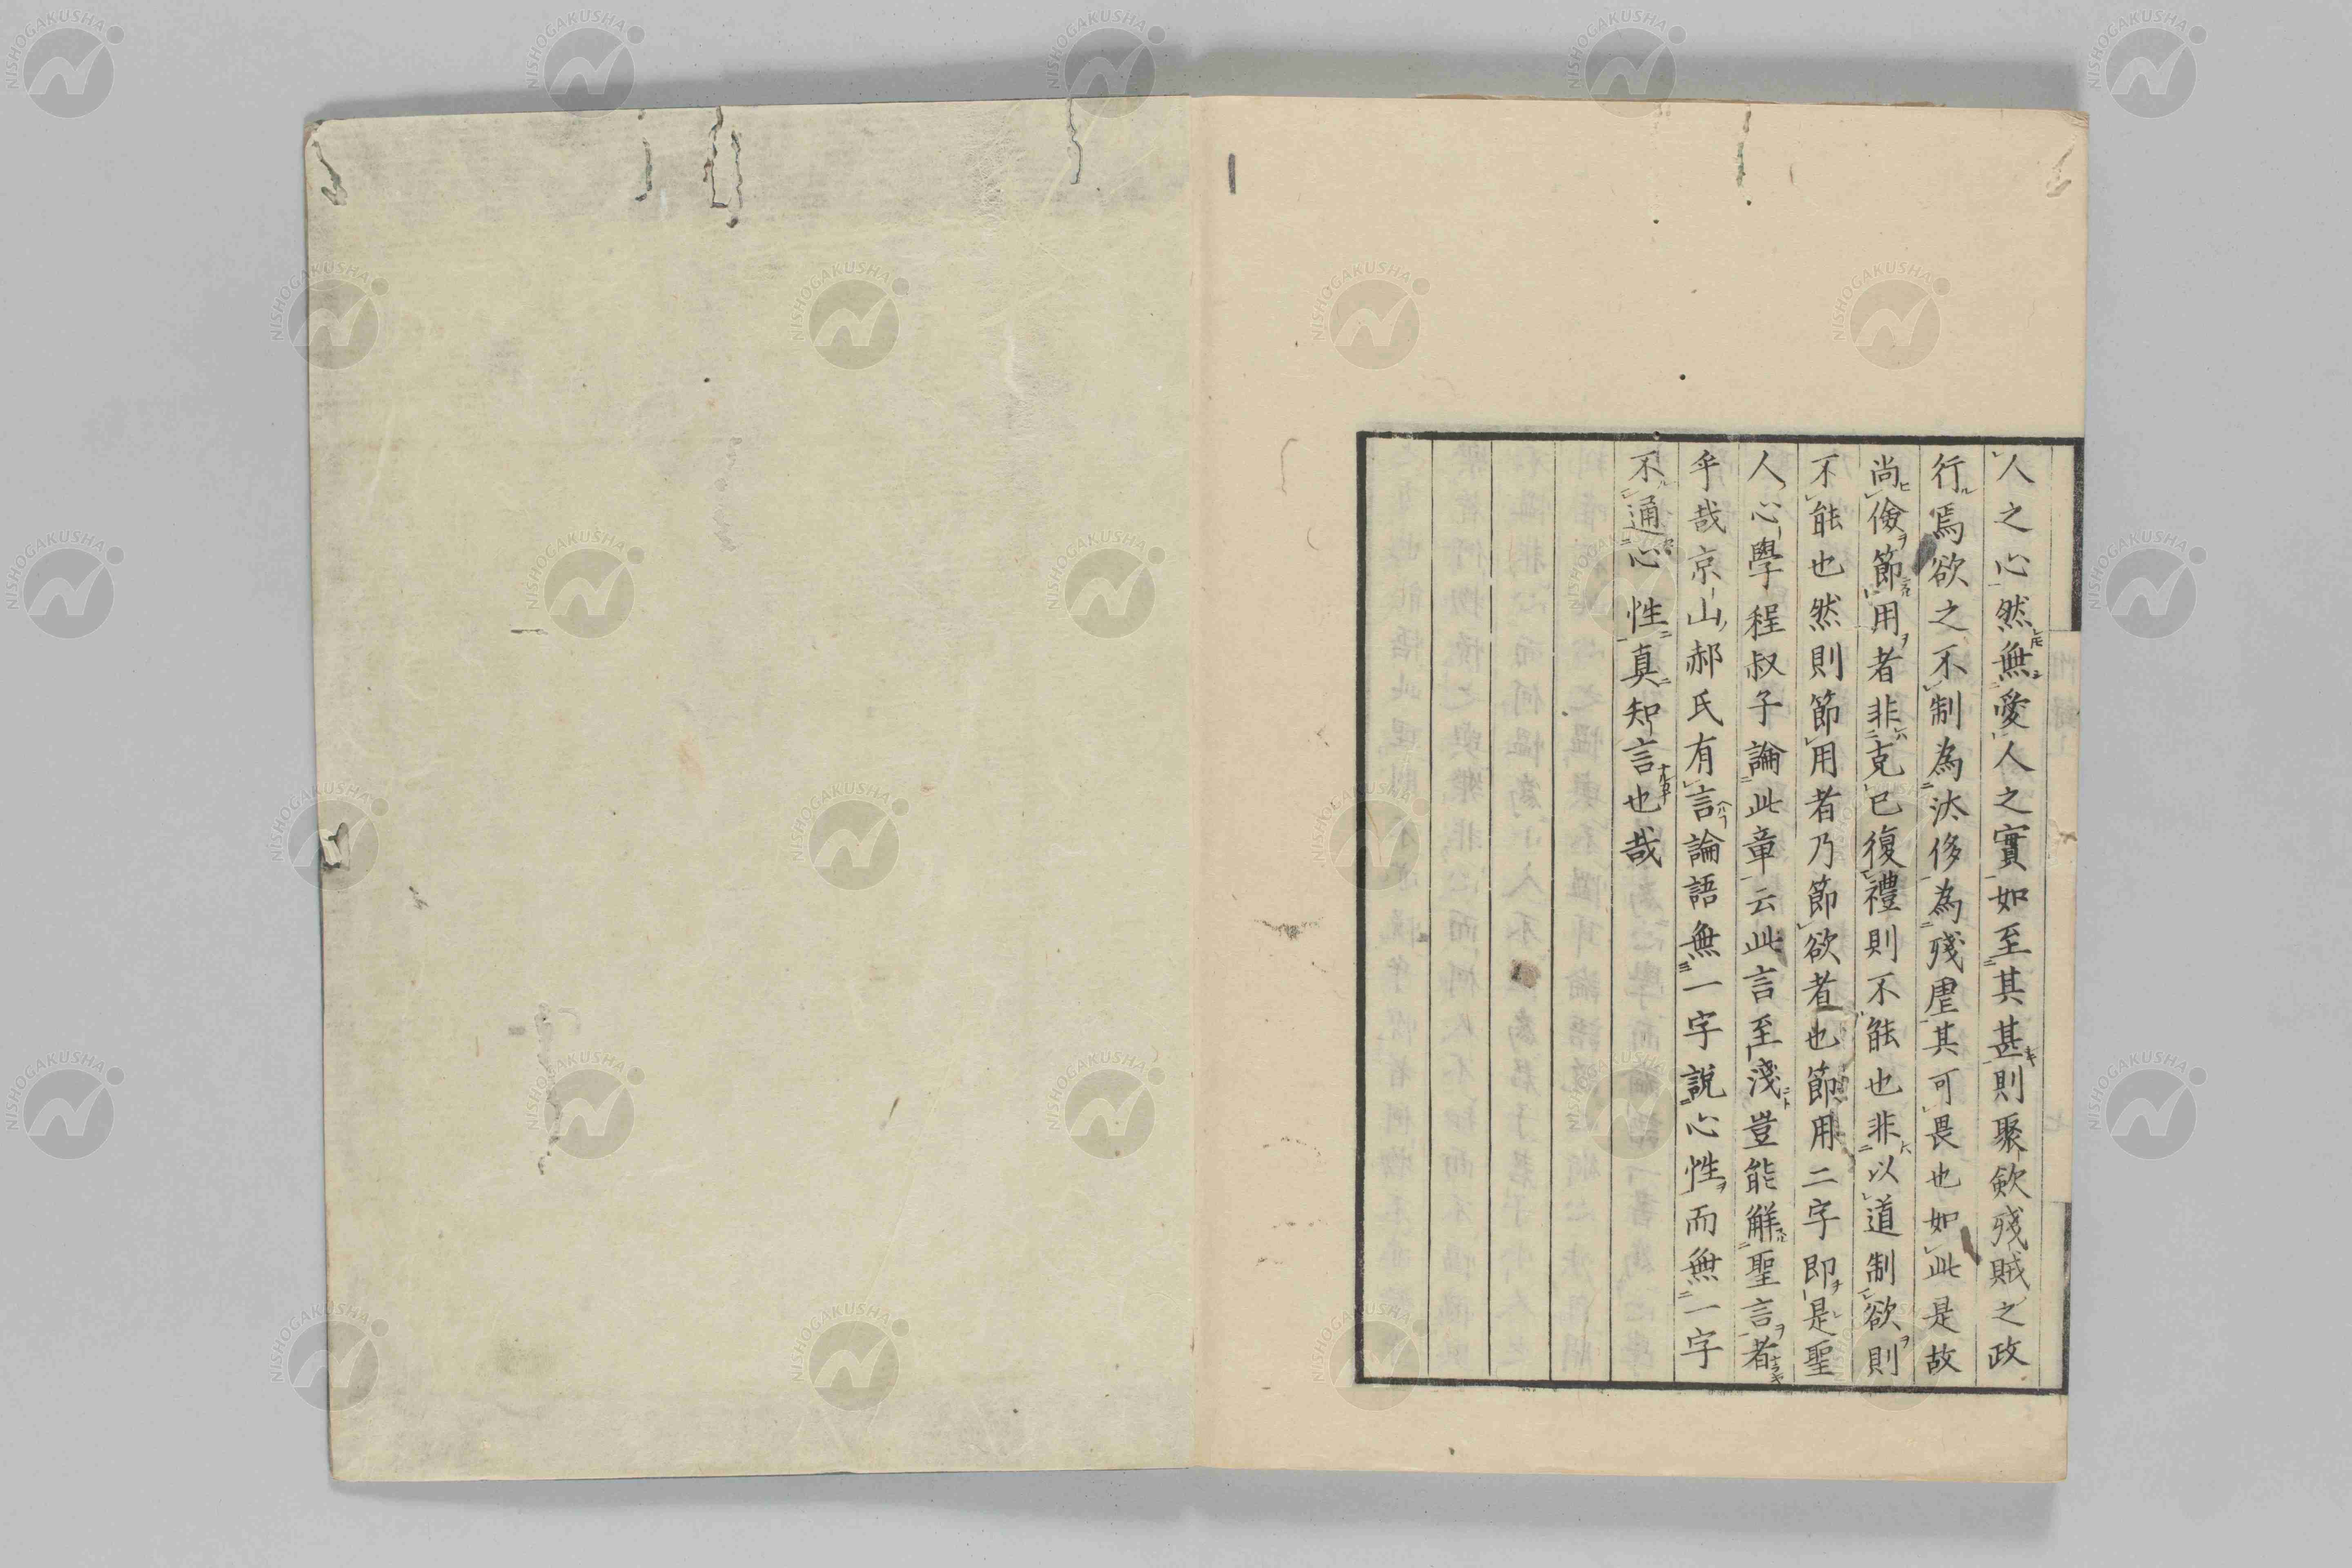 人之心然無愛人之實如至其甚則聚斂殘賊之政
行焉欲之不制為汰侈為殘虐其可畏也如此是故
尚儉節用者非克已復禮則不能也非以道制欲則
不能也然則節用者乃節欲者也節用二字即是聖
人心學程叔子論此章云此言至淺豈能解聖言者
乎哉京山郝氏有言論語無一字說心性而無一字
不通心性真知言也哉
NISHOGAKUSHA